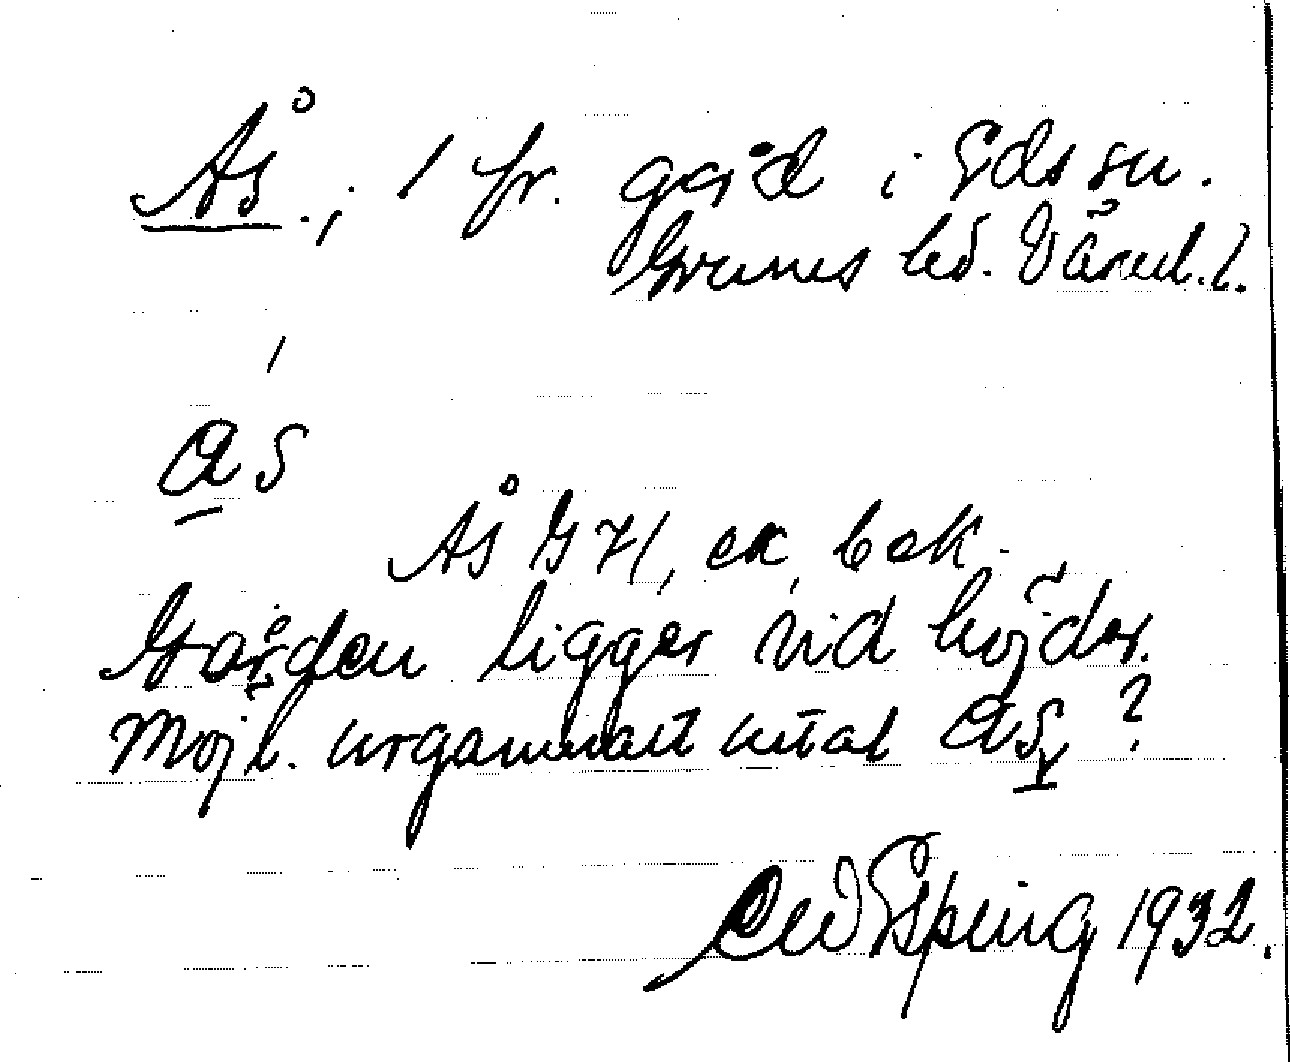 Ås., 1 fr. gård i Eds sn.
Grums hd. Värml. l.
ás
Ås G 71, ek, bek.
Gården ligger vid höjder.
Möjl. urgammalt uttal ás ?
Esping 1932.